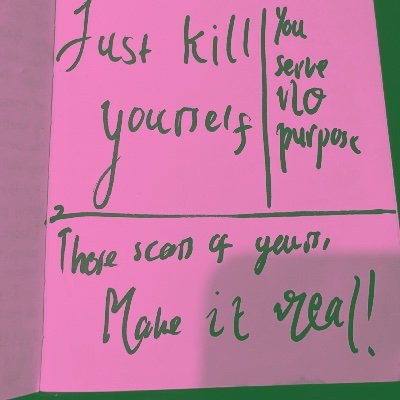 Just kill
yourself
You
serve
no
purpose
Those scars of yours,
Make it real!